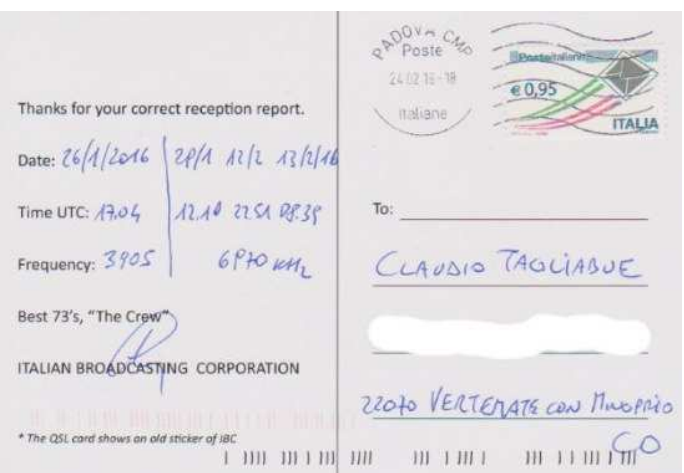 Thanks for your correct reception report.
Date: 26/1/2016 28/1 12/2 13/2/16
Time UTC: 17.04 12.10 2251 08.39
Frequency: 3905 6970 KHz
Best 73's, "The Crew"
ITALIAN BROADCASTING CORPORATION
* The QSL card shows an old sticker of IBC
PADOVA CMP
Poste
24.02.16-18
italiane
Posteitaliane
€ 0,95
ITALIA
To:
CLAUDIO TAGLIABUE
22070 VERTEMATE CON MINOPRIO
CO